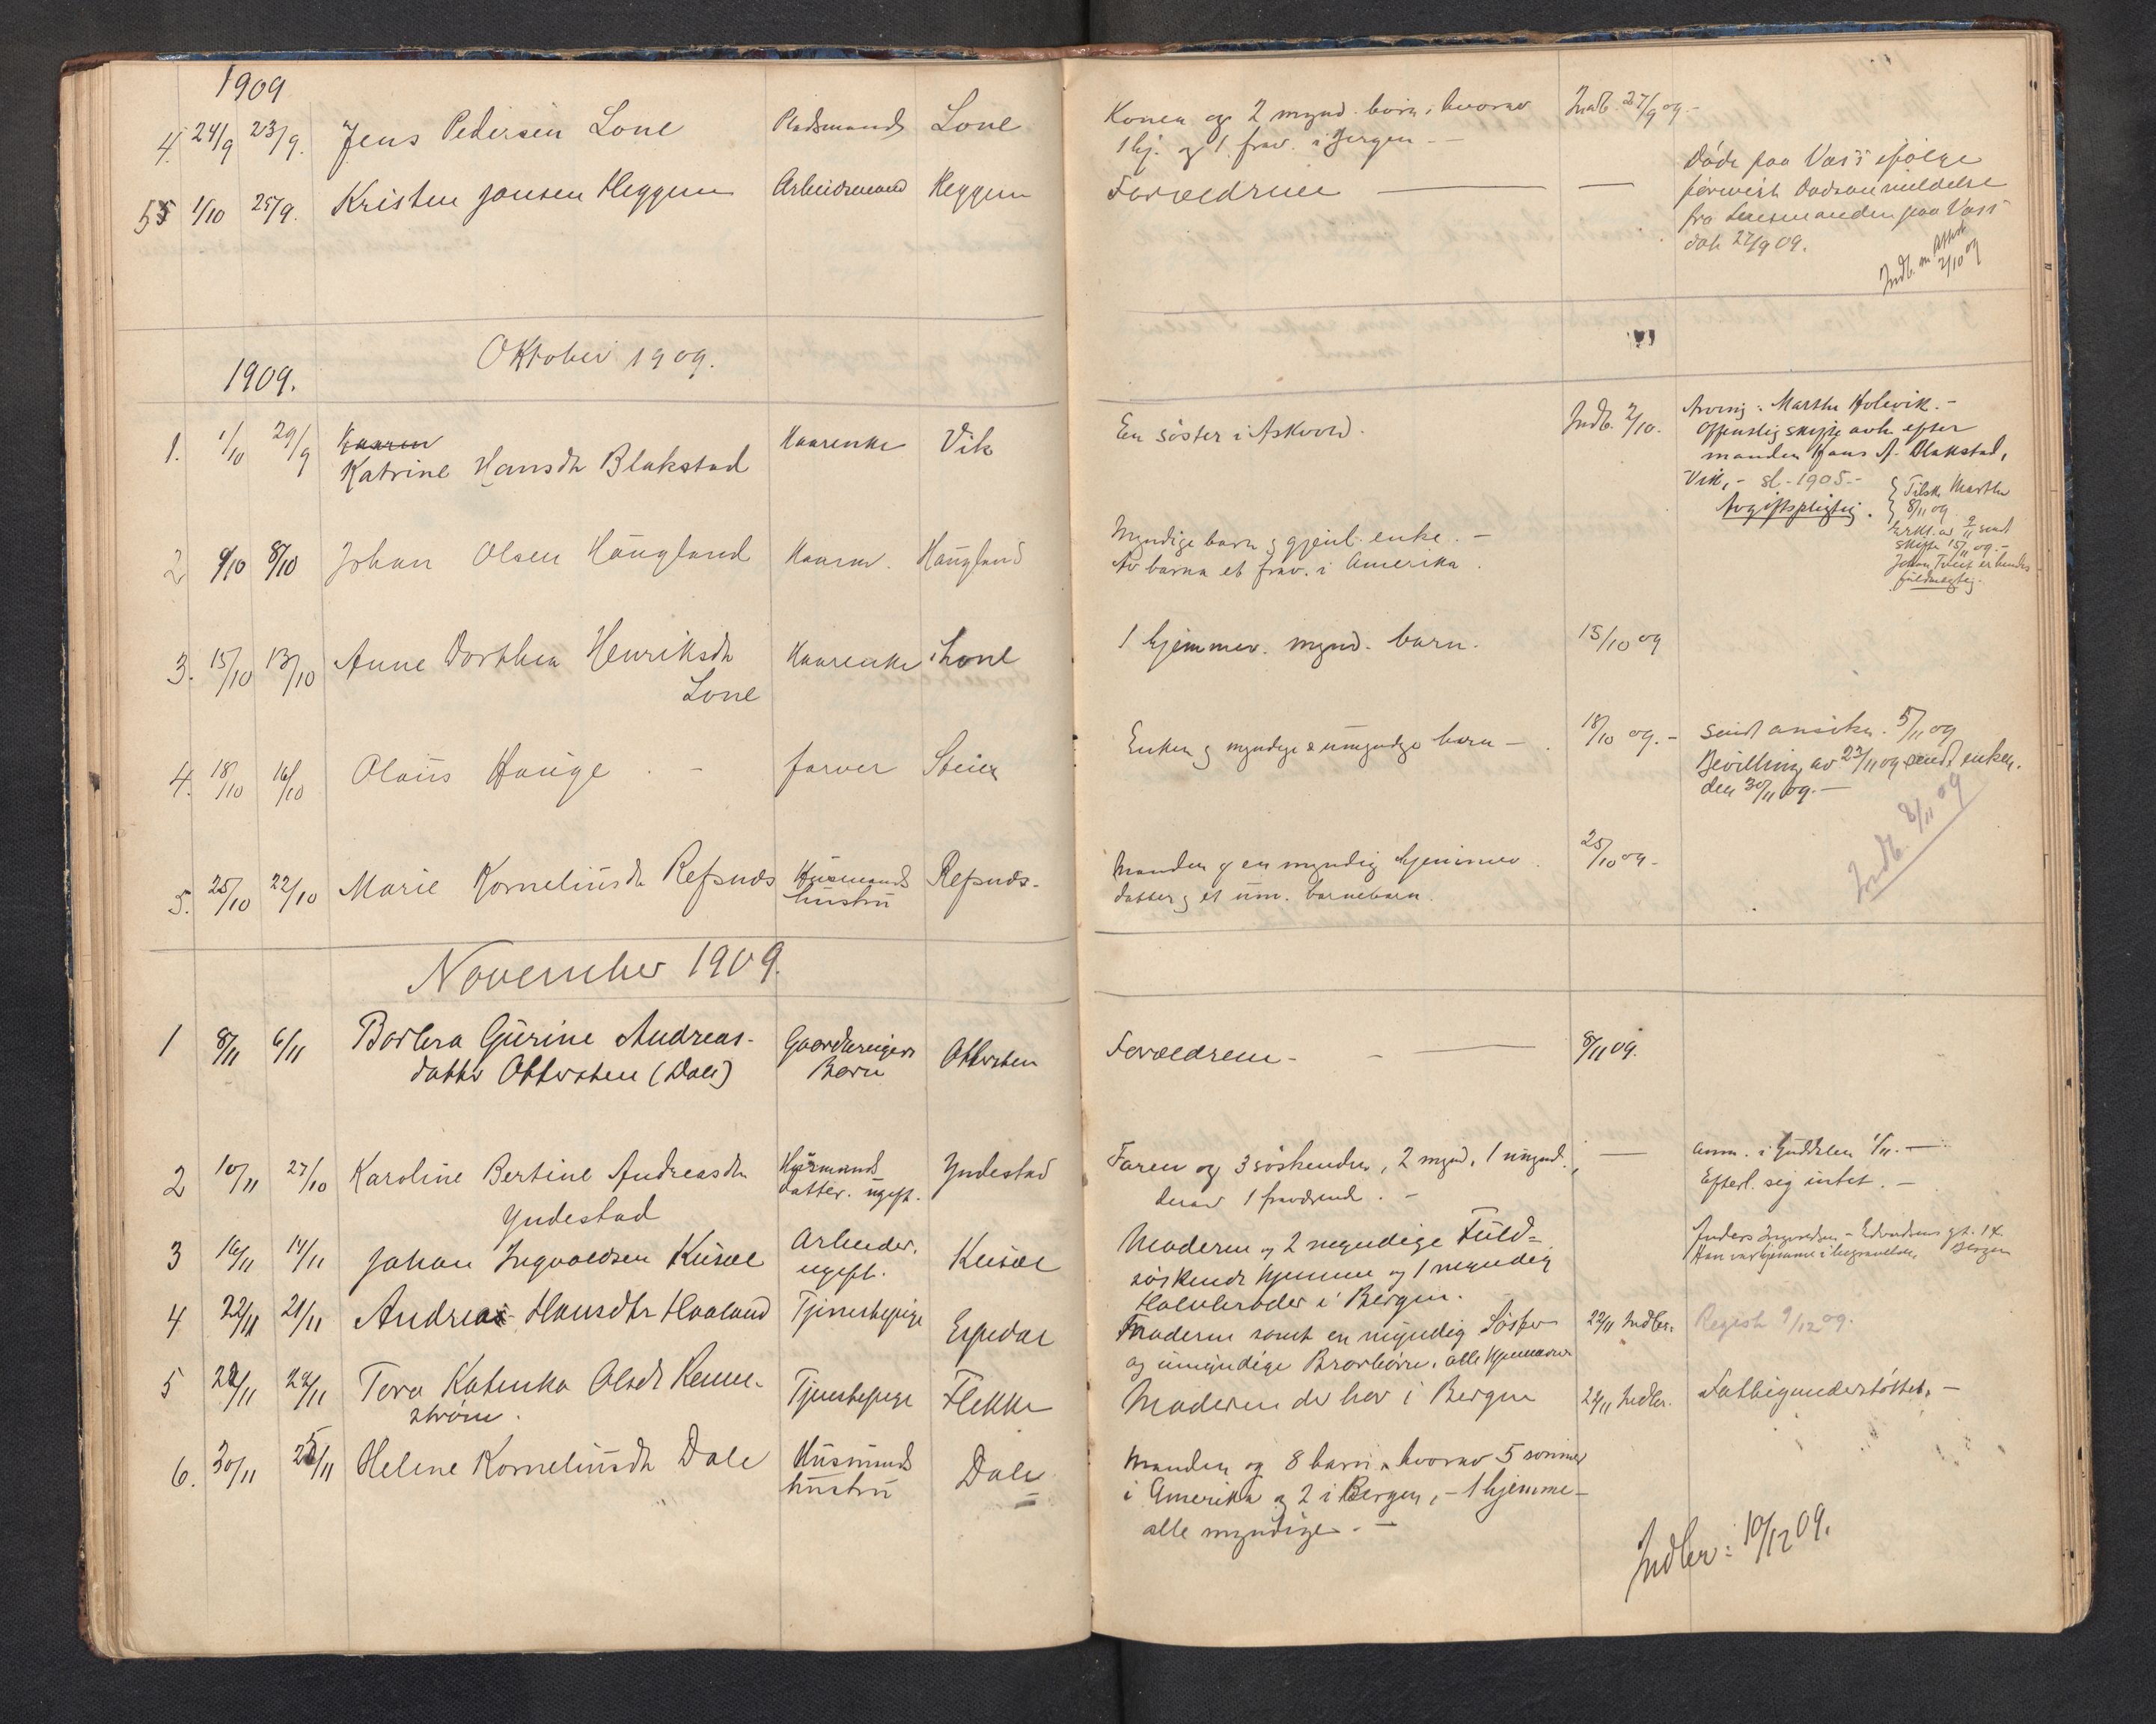 1909
4. 24/9 23/9. Jens Pedersen Lone Pladsmand Lone
5 1/10 25/9. Kristen Jansen Heggum Arbeidsmand Heggum
Oktober 1909.
1909.
1. 1/10 29/9 Kaaren
Katrine Hansdtr Blakstad Kaarenke Vik
2 9/10 8/10 Johan Olsen Haugland Kaarm. Haugland
3. 15/10 13/10 Anne Dorthea Henriksdtr Kaarenke Lone
Lone
4. 18/10 16/10 Olaus Hauge farver Steien
5. 25/10 22/10 Marie Korneliusdtr Refsnes Husmands Refsnes.
hustru
November 1909.
1 8/11 6/11 Barbra Gurine Andreas- Gaardbrugers
datter Ottersten (Dale) Barn Ottersten
2 10/11 27/10 Karoline Bertine Andreasdtr Husmands Yndestad
datter. ugift.
Yndestad
3 16/11 14/11 Johan Ingvaldsen Arbeider.
ugift.
4 22/11 21/11 Andrea Hansdtr Haaland Tjenestepige Espedal
5 22/11 Tora Katinka Olsdtr Tjenestepige Flekke
strøm.
6. 30/11 25/11 Helene Korneliusdtr Dale Husmands Dale
hustru
Konen og 2 mynd. børn, hvorav Indb. 27/9 09.-
1 hj. og 1 frav. i Bergen. -
Forældrene — —
Døde paa Voss ifølge
Dødsanmeldelse
fra Lensmanden paa Voss
dat. 27/9 09.
Indb. m Attest
2/10 09
En søster i Askvold. Indb. 2/10.
Arving: Marthe Holevik. -
Offentlig skifte avh. efter
manden Hans A. Blakstad,
Vik, - sl. 1905. -
Avgiftspligtig.
Tilsk. Marthe
8/11 09
skifte 15/11 09. -
fuldmegtig.
Myndige barn og gjenl. enke. -
Av barna et frav. i Amerika.
1 hjemmev. mynd. barn. 15/10 09
Enken og myndige & umyndige barn - 18/10 09. -
Send ansøkn. 5/11 09
Bevilling av 23/11 09 sendt enken.
den 30/11 09. -
Indb. 8/11 09
Manden og en myndig hjemmev. 25/10 09 -
datter og et um. barnebarn.
Forældrene - - — 8/11 09.
Faren og 3 søskende, 2 mynd, 1 umynd., —
derav 1 fraværende. -
anm. i 1/11. —
Efterl. sig intet. -
Moderen og 2 myndige Fuld-
søskende hjemme og 1 myndig
Halvbroder i Bergen.
Han var hjemme i begravelsen, Bergen
Faderen samt en myndig Søster 22/11 Indber.
og umyndige Brorbørn. alle hjemmev
Regist 9/12 09.
Moderen der bor i Bergen 22/11 Indber.
Fattigunderstøttet, -
Manden og 8 barn, hvorav 5 sønner
i Amerika og 2 i Bergen, - 1 hjemme -
alle myndige. -
Indber: 10/12 09.